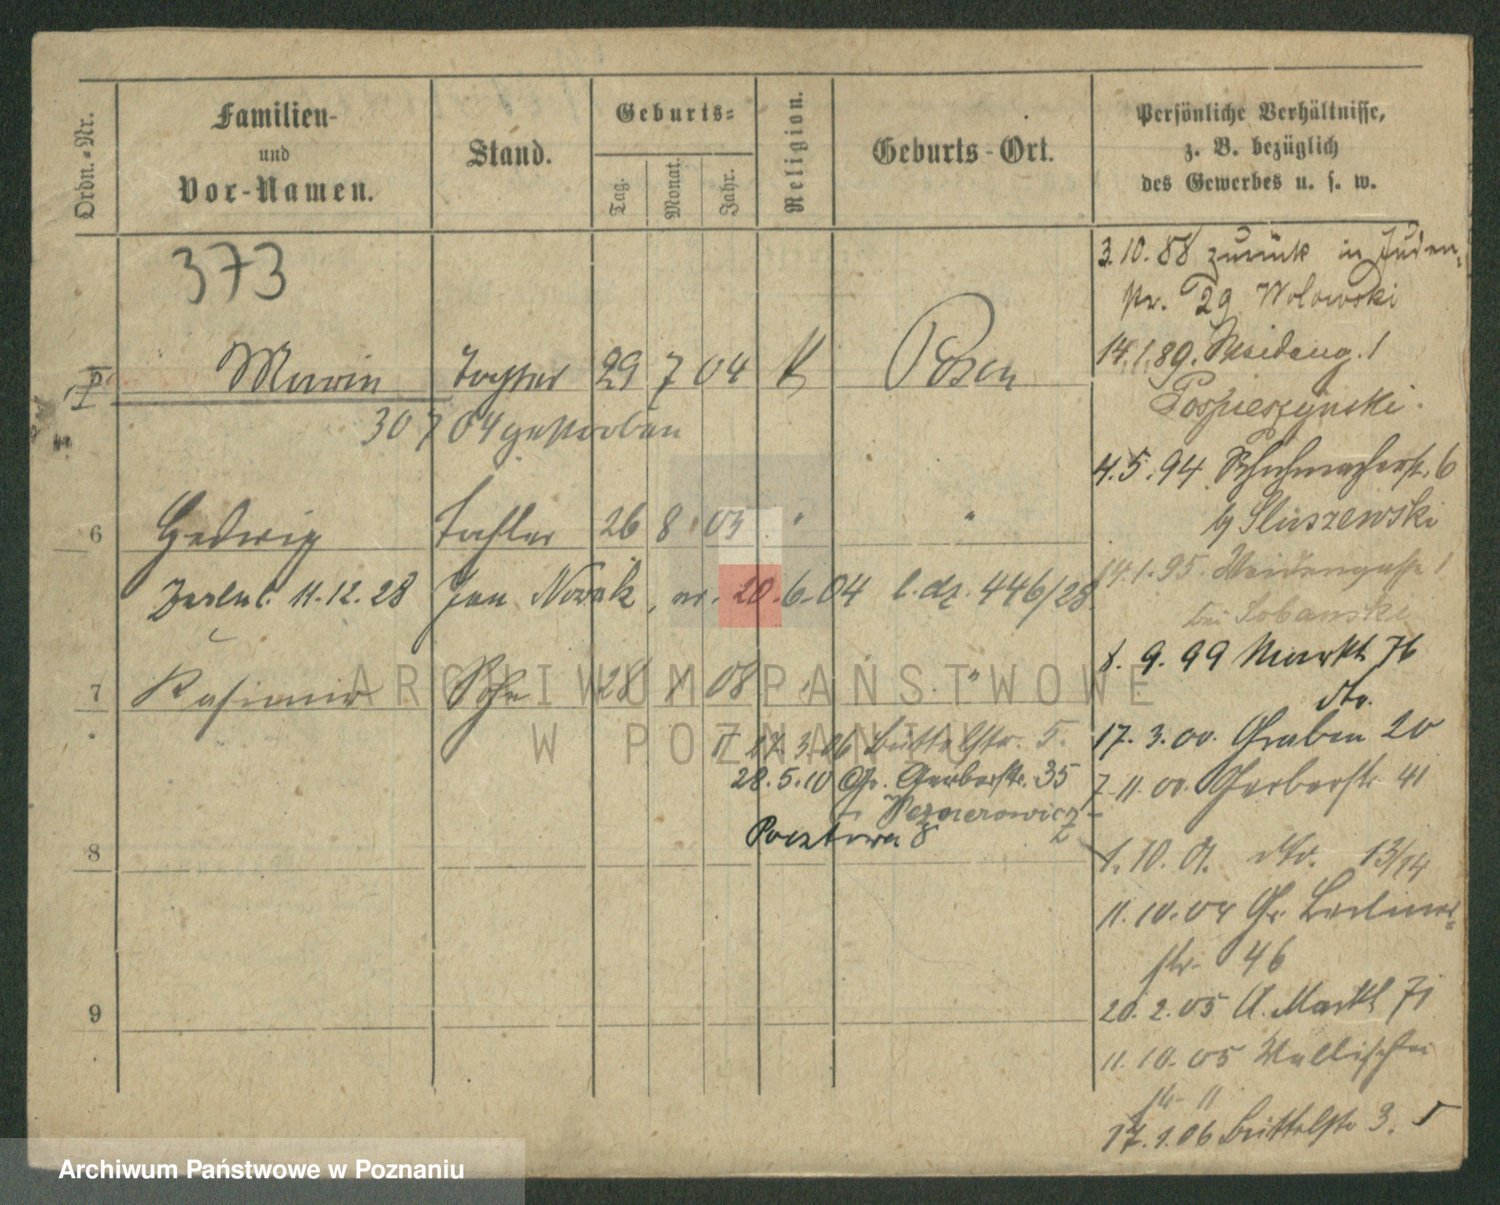 Ordn.-Nr.
Familien-
und
Vor-Namen.
Stand.
Geburts-
Tag.
Monat.
Jahr.
Religion.
Geburts-Ort.
Persönliche Verhältnisse,
z. B. bezüglich
des Gewerbes u. s. w.
373
Tochter 29 7 04 K Posen
30 7 04 gestorben
6 Hedwig Tochter 26 8 03 " "
11.12.28 Jan Nowak, ur. 20.6.04 l.dz. 446/28
7 Kasimir Sohn 28 1 08 " "
17.3.06 Büttelstr. 5.
28.5.10 Gr. Gerberstr. 35
Pocztowa 8
8
9
3.10.88 zurück in Juden-
str. 29 Wolowski
14.1.89. Weideng. 1
Pospieszynski.
4.5.94 Schuhmacherstr. 6
b/ Sluszewski
14.1.95. Weidengasse 1
bei Sobanski
8.9.99 Markt 76
dto.
17.3.00. Graben 20
7.11.00. Gerberstr 41
1.10.01. dto. 13/14
11.10.04 Gr. Berliner-
str. 46
20.2.05 A. Markt 71
11.10.05 Wallischei
str. 11
17.1.06 Büttelstr 3.
ARCHIWUM PAŃSTWOWE
W POZNANIU
Archiwum Państwowe w Poznaniu